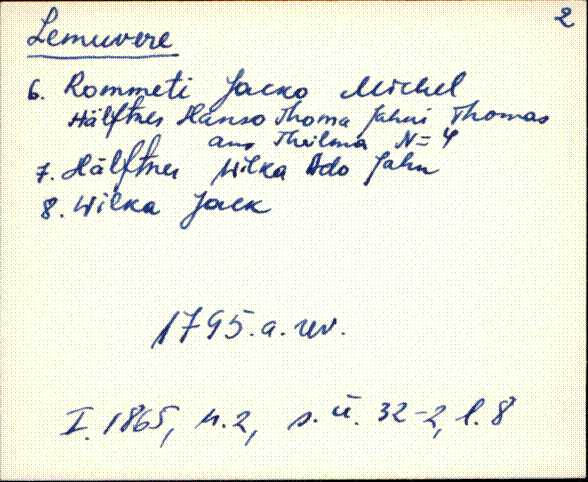 2
Lemuvere
6. Rommeti Jacko Michel
Hälftner Hanso Thoma Jahni Thomas
aus Theilma N= 4
7. Hälftner Wilka Ado Jahn
8. Wilka Jack
1795.a. rev.
I. 1865, n. 2, s. ü. 32-2, l. 8